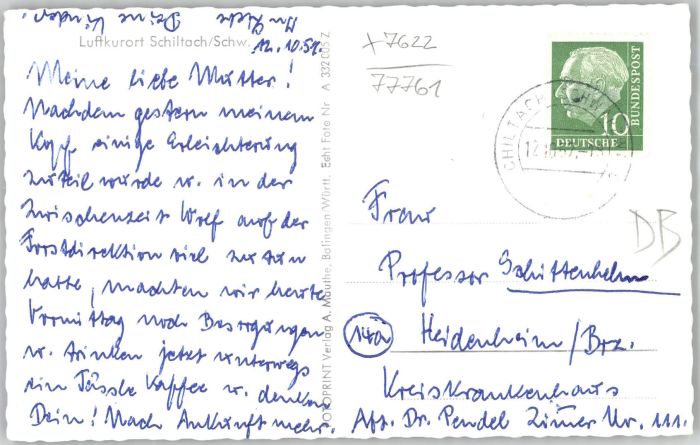 Luftkurort Schiltach/Schw.
12.10.57.
Meine liebe Mutter!
Nachdem gestern meinem
Kopf einige Erleichterung
zuteil wurde u. in der
Zwischenzeit Wolf auf der
Forstdirektion viel zu tun
hatte, machten wir heute
Vormittag noch Besorgungen
u. trinken jetzt unterwegs
ein Tässle Kaffee u. denken
Dein! Nach Ankunft mehr.
In Liebe Deine Kinder.
FOTOPRINT Verlag A. Mauthe, Balingen/Württ. Echt Foto Nr. A 332 005 Z
+7622
77761
DEUTSCHE BUNDESPOST
10
DB
Frau
Professor Schittenhelm
14a Heidenheim/Brz.
Kreiskrankenhaus
Abt. Dr. Pendel Zimer Nr. 111.